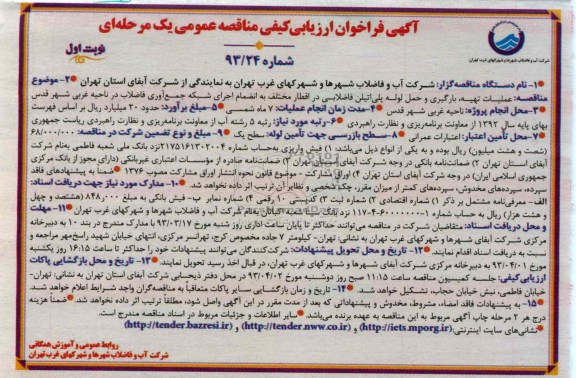 آگهی فراخوان ارزیابی‌کیفی مناقصه عمومی یک مرحله‌ای
شماره ۹۳/۲۴
نوبت اول
شرکت آب و فاضلاب شهرها و شهرکهای غرب تهران
۱- نام دستگاه مناقصه‌گزار: شرکت آب و فاضلاب شهرها و شهرکهای غرب تهران به نمایندگی از شرکت آبفای استان تهران ۲- موضوع
مناقصه: عملیات تهیه، بارگیری و حمل لوله پلی‌اتیلن فاضلابی در اقطار مختلف به انضمام اجرای شبکه جمع‌آوری فاضلاب در ناحیه غربی شهر قدس
۳- محل انجام پروژه: ناحیه غربی شهر قدس ۴- مدت زمان انجام عملیات: ۷ ماه شمسی ۵- مبلغ برآورد: حدود ۲۰ میلیارد ریال بر اساس فهرست
بهای پایه سال ۱۳۹۲ از معاونت برنامه‌ریزی و نظارت راهبردی ۶- رتبه مورد نیاز: رتبه ۵ رشته آب از معاونت برنامه‌ریزی و نظارت راهبردی ریاست جمهوری
۷- محل تأمین اعتبار: اعتبارات عمرانی ۸- سطح بازرسی جهت تأمین لوله: سطح یک ۹- مبلغ و نوع تضمین شرکت در مناقصه: ۶۸/۰۰۰/۰۰۰
(شصت و هشت میلیون) ریال بوده و به یکی از انواع ذیل می‌باشد: ۱) فیش واریزی به‌حساب شماره ۲۱۷۵۱۶۱۳۰۲۰۰۴ نزد بانک ملی شعبه فاطمی به‌نام شرکت
آبفای استان تهران ۲) ضمانت‌نامه بانکی در وجه شرکت آبفای استان تهران ۳) ضمانت‌نامه صادره از مؤسسات اعتباری غیربانکی (دارای مجوز از بانک مرکزی
جمهوری اسلامی ایران) در وجه شرکت آبفای استان تهران ۴) اوراق مشارکت - موضوع قانون نحوه انتشار اوراق مشارکت مصوب ۱۳۷۶ ضمناً به پیشنهادهای فاقد
سپرده، سپرده‌های مخدوش، سپرده‌های کمتر از میزان مقرر، چک شخصی و نظایر آن ترتیب اثر داده نخواهد شد. ۱۰- مدارک مورد نیاز جهت دریافت اسناد:
الف- معرفی‌نامه مشتمل بر ذکر ۱) شماره اقتصادی ۲) شماره ثبت ۳) کدپستی ۱۰ رقمی ۴) شماره نمابر ب- فیش بانکی به مبلغ ۸۴۸/۰۰۰ (هشتصد و چهل
و هشت هزار) ریال به حساب شماره
و محل دریافت اسناد: متقاضیان شرکت در مناقصه می‌توانند حداکثر تا پایان ساعت اداری روز شنبه مورخ ۹۳/۰۳/۱۷ با مدارک مندرج در بند ۱۰ به دبیرخانه
مرکزی شرکت آبفای شهرها و شهرکهای غرب تهران به نشانی: تهران- کیلومتر ۷ جاده مخصوص کرج، تهرانسر مرکزی، انتهای خیابان شهید راسخ‌مهر مراجعه و
نسبت به دریافت اسناد اقدام نمایند. ۱۲- تاریخ و محل تحویل پیشنهادات: شرکت‌کنندگان می‌توانند پیشنهادات خود را حداکثر تا ساعت ۱۶:۱۵ روز یکشنبه
مورخ ۹۳/۰۴/۰۱ به دبیرخانه مرکزی شرکت آبفای شهرها و شهرکهای غرب تهران، در قبال اخذ رسید تحویل نمایند. ۱۳- تاریخ و محل بازگشایی پاکات
ارزیابی کیفی: جلسه کمیسیون مناقصه ساعت ۱۱:۱۵ صبح روز دوشنبه مورخ ۹۳/۰۴/۰۲ در محل دفتر ذیحسابی آبفای استان تهران به نشانی: تهران-
خیابان فاطمی، نبش خیابان حجاب، تشکیل خواهد شد. ۱۴- تاریخ و زمان بازگشایی سایر پاکات متعاقباً به مناقصه‌گران واجد شرایط اعلام خواهد شد.
۱۵- به پیشنهادات فاقد امضاء، مشروط، مخدوش و پیشنهاداتی که بعد از مدت مقرر در این آگهی واصل شود، مطلقاً ترتیب اثر داده نخواهد شد. ضمناً هزینه
درج هر ۲ مرحله چاپ آگهی مربوط به این مناقصه به عهده برنده می‌باشد. سایر اطلاعات و جزئیات مربوط در اسناد مناقصه مندرج است.
نشانی‌های سایت اینترنتی: (http://iets.mporg.ir) و (http://tender.nww.co.ir) و (http://tender.bazresi.ir)
روابط عمومی و آموزش همگانی
شرکت آب و فاضلاب شهرها و شهرکهای غرب تهران